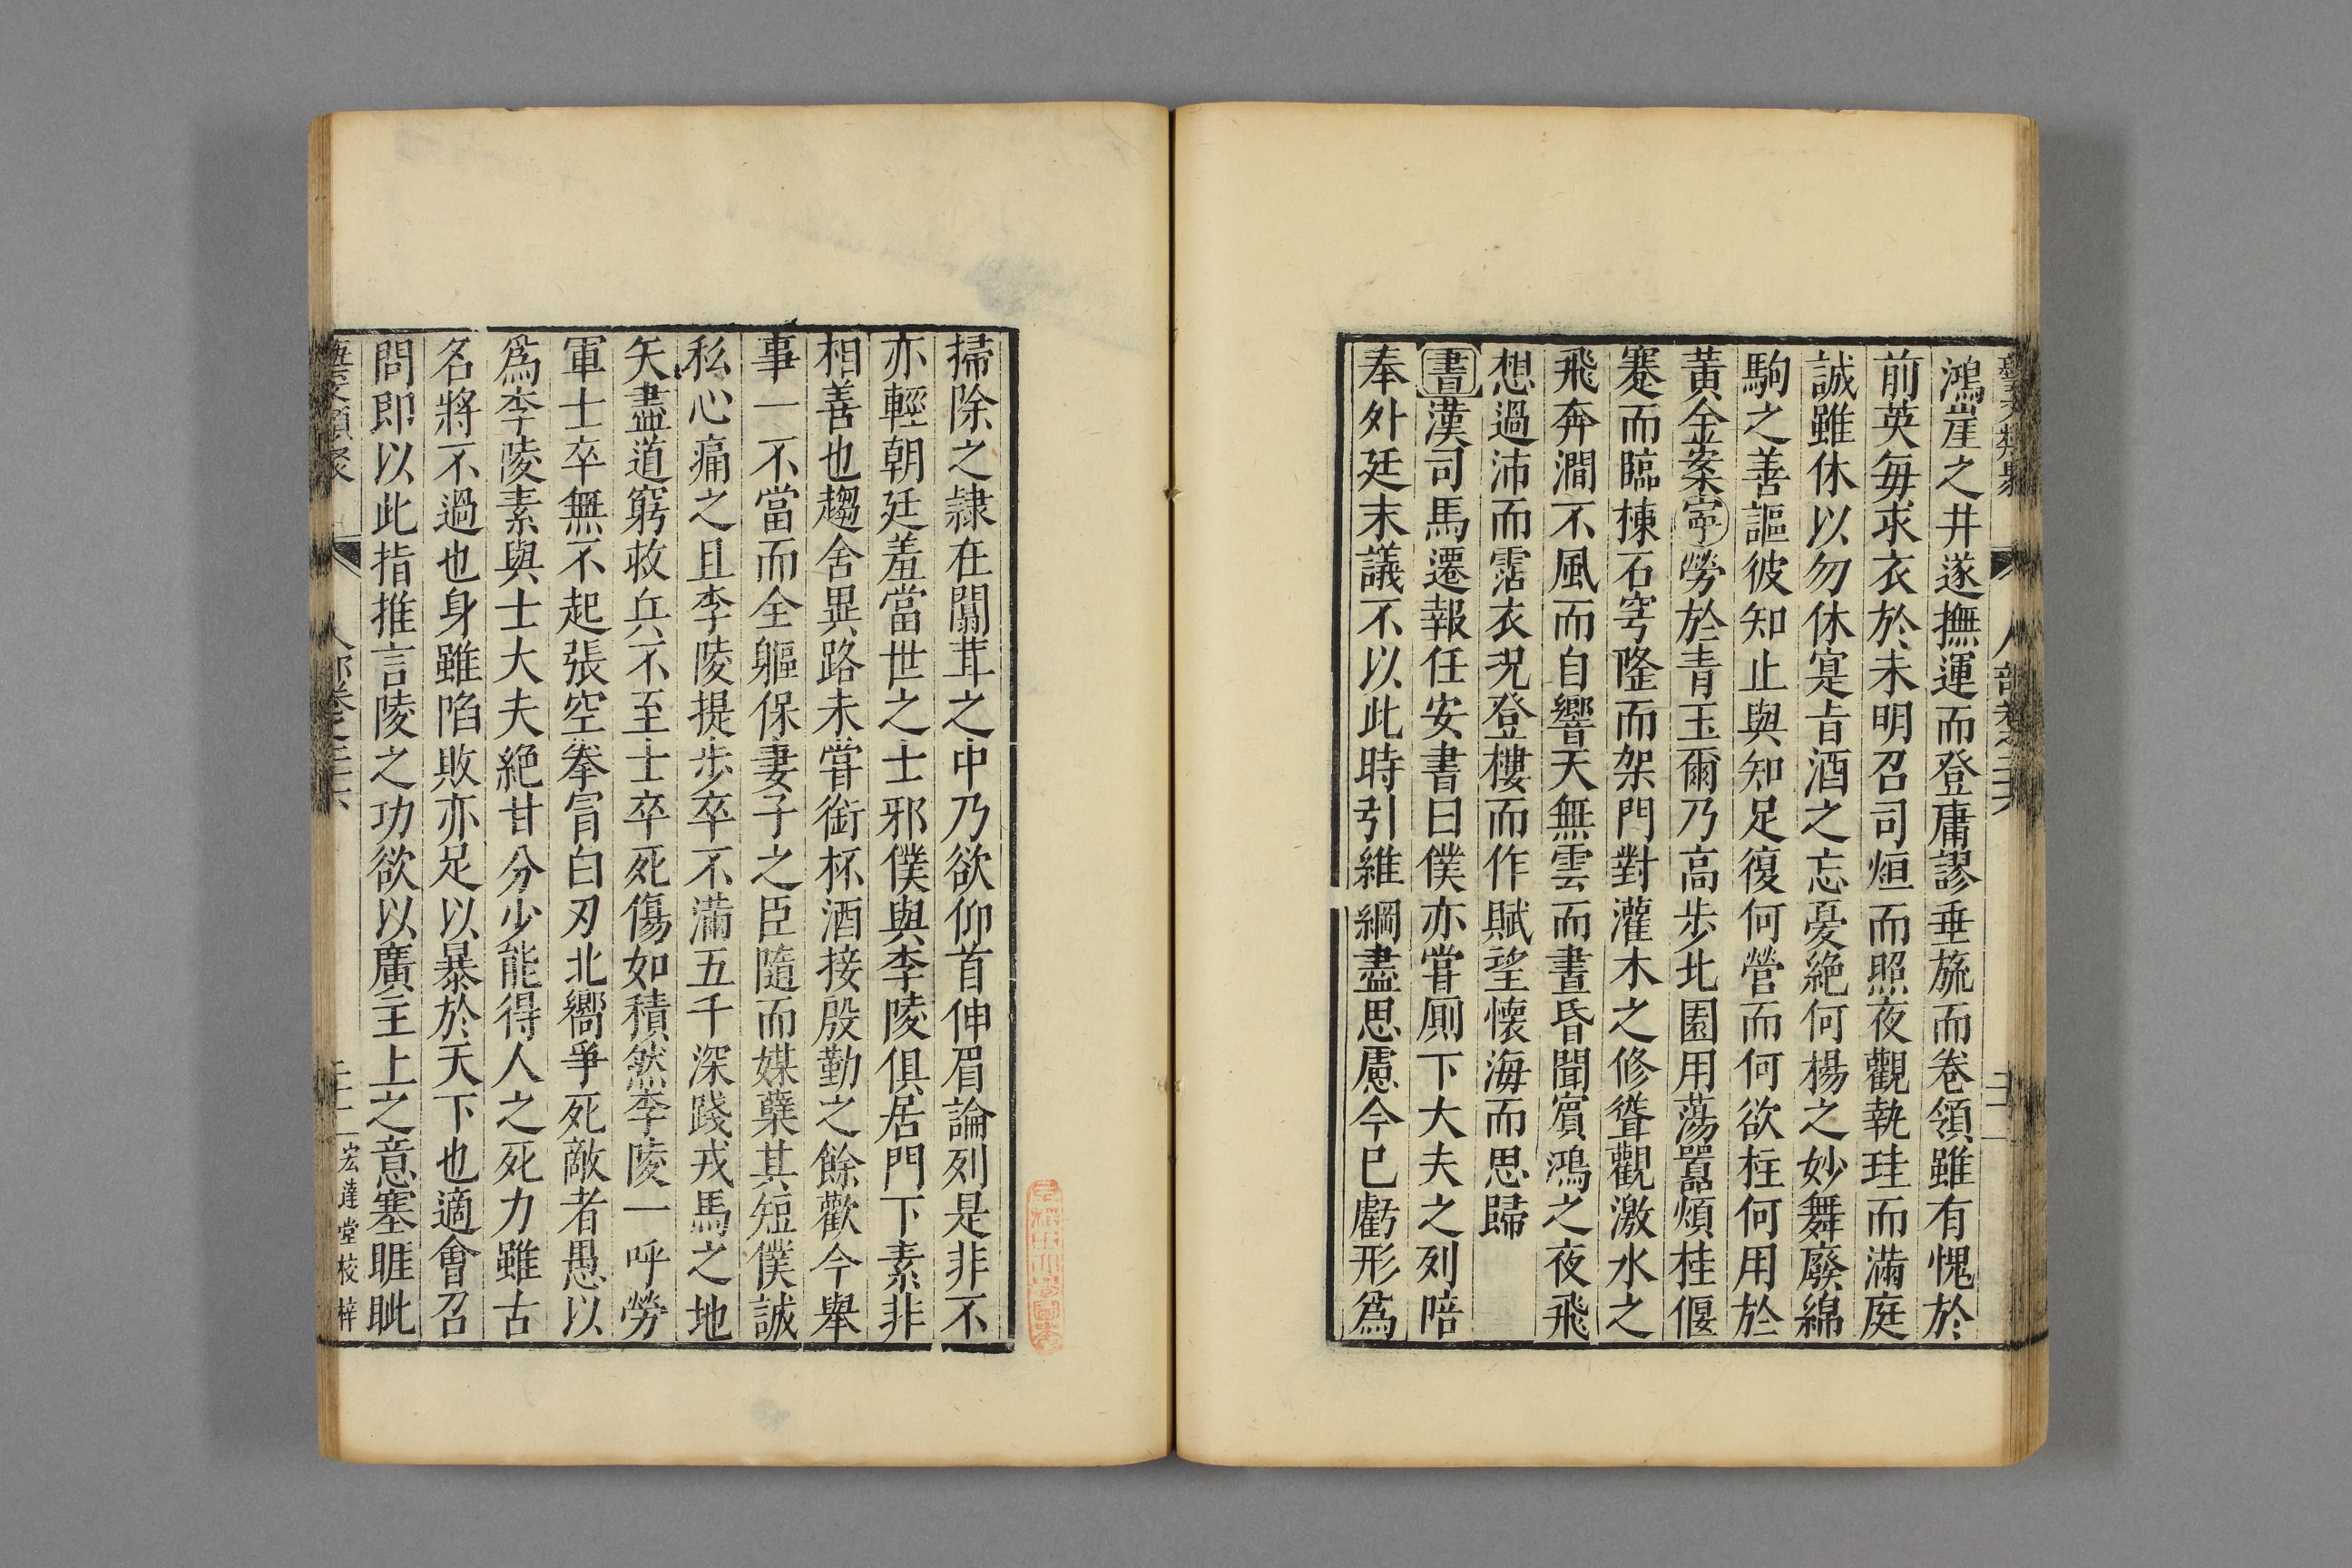 鴻崖之井遂撫運而登庸謬垂旒而卷領雖有愧於
前英每求衣於未明召司烜而照夜觀執珪而滿庭
誠雖休以勿休寔旨酒之忘憂絶何楊之妙舞廢綿
駒之善謳彼知止與知足復何營而何欲柱何用於
黃金案寧勞於青玉爾乃高步北園用蕩囂煩桂偃
蹇而臨棟石穹隆而架門對灌木之修聳觀激水之
飛奔澗不風而自響天無雲而晝昏聞賓鴻之夜飛
想過沛而霑衣況登樓而作賦望懷海而思歸
書漢司馬遷報任安書曰僕亦嘗厠下大夫之列陪
奉外廷末議不以此時引維綱盡思慮今已虧形爲
掃除之隷在闒茸之中乃欲仰首伸眉論列是非不
亦輕朝廷羞當世之士邪僕與李陵俱居門下素非
相善也趨舍異路未嘗銜杯酒接殷勤之餘歡今舉
事一不當而全軀保妻子之臣隨而媒蘖其短僕誠
私心痛之且李陵提步卒不滿五千深踐戎馬之地
矢盡道窮救兵不至士卒死傷如積然李陵一呼勞
軍士卒無不起張空拳冐白刃北嚮爭死敵者愚以
爲李陵素與士大夫絶甘分少能得人之死力雖古
名將不過也身雖陷敗亦足以暴於天下也適會召
問即以此指推言陵之功欲以廣主上之意塞睚眦
宏達堂校梓